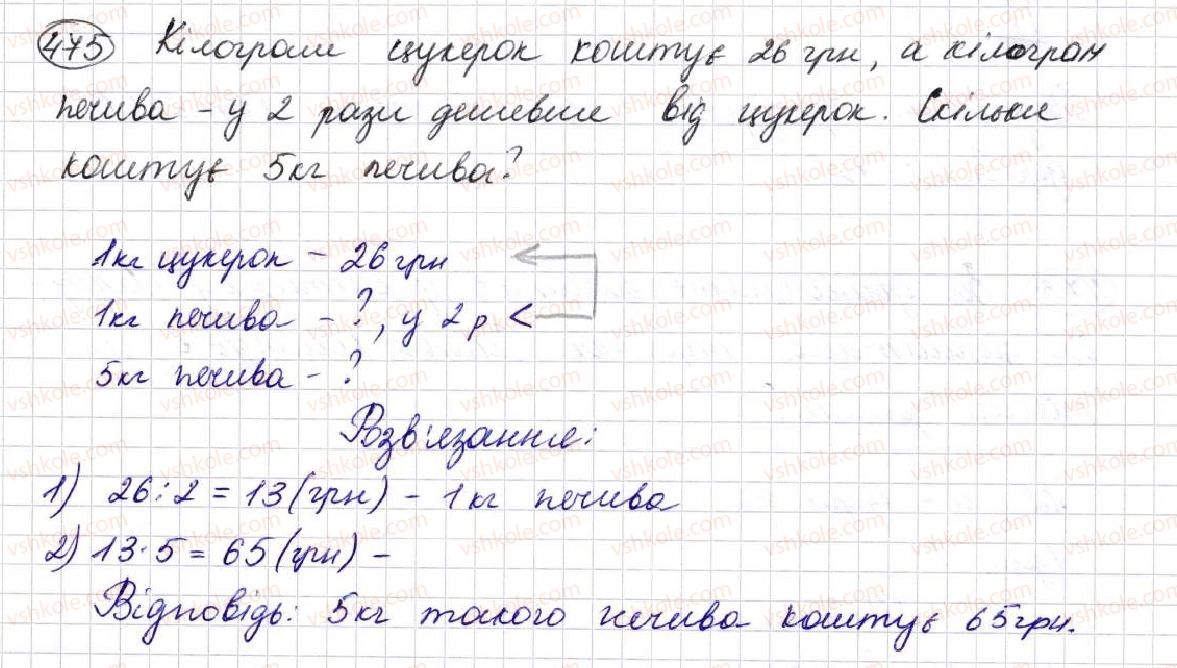 475 Кілограм цукерок коштує 26 грн, а кілограм
печива - у 2 рази дешевше від цукерок. Скільки
коштує 5кг печива?
1кг цукерок - 26 грн
1кг печива - ?, у 2 р <
5кг печива - ?
Розв'язання:
1) 26:2 = 13 (грн) - 1кг печива
2) 13·5 = 65 (грн) -
Відповідь: 5кг такого печива коштує 65грн.